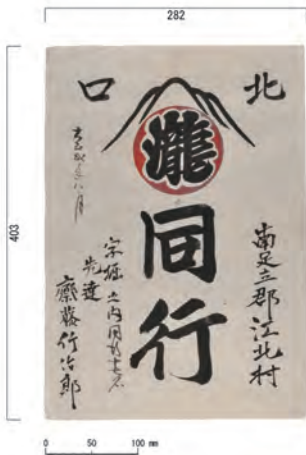 282
403
北口
瀧
同行
南足立郡江北村
字堀之内同行
先達
齋藤行治郎
八月
0 50 100 mm